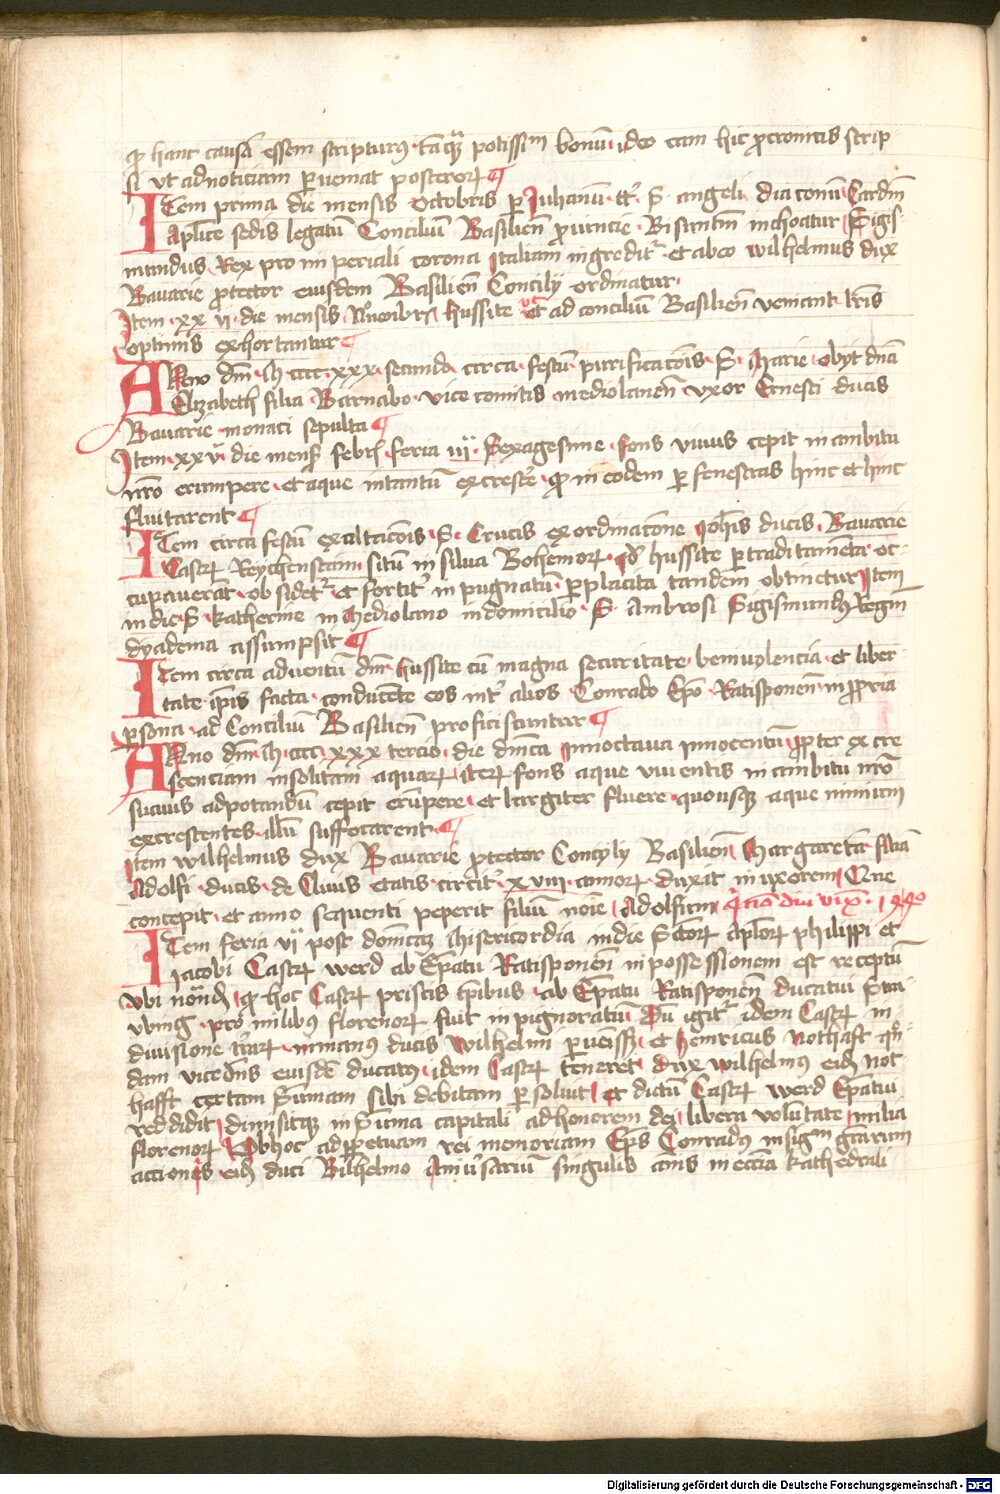 hanc causam essem scripturus potissim bonum ideo eam hic scrip
si ut ad noticiam perveniat posterorum
Item prima die mensis Octobris per Juhanum tt. S. angeli diaconum Cardin
Aplice sedis legatum Concilium Basilien provincie Bisuntin inchoatur Sigis
mundus Rex pro imperiali corona Italiam ingreditr et ab eo wilhelmus dux
Bavarie protector eiusdem Basilien Concilij ordinatur
Item xxvi die mensis Novembris hussite ut ad concilium Basilien veniant lris
optimis exhortantur
Anno dni M cccc xxx secundo circa festum purificacois S. Marie obijt dna
Elizabeth filia Barnabo vice comitis mediolanen uxor Ernesti ducis
Bavarie monaci sepulta
Item xxv die mens febr feria iii Sexagesime fons vivus cepit in ambitu
nro erumpere et aque intantum excrescere in eodem per fenestras hinc et hinc
fluitarent
Item circa festum exaltacois S. Crucis ex ordinacone Johis ducis Bavarie
Castrum Reychenstain situm in silva Bohemorum hussite per traditamenta oc
cupaverat obsidetr et fortitr inpugnatum per placita tandem obtinetur Item
in die S. katherine in Mediolano in domicilio S. Ambrosi Sigismundus Regium
dyadema assumpsit
Item circa adventum dni hussite cum magna securitate benivolencia et liber
tate ipis facta conducente eos intr alios Conrado Epo Ratisponen in propria
persona ad Concilium Basilien proficiscuntur
Anno dni M cccc xxx tercio die dmca in octava Innocentum propter excre
scenciam insolitam aquarum iterum fons aque viventis in ambitu nro
suavis ad potandum cepit erumpere et largiter fluere quousque aque nimium
excrescentes illum suffocarent
Item wilhelmus dux Bavarie protector Concilij Basilien Margaretam filiam
Adolfi ducis de Clivis etatis circitr xviii annorum duxit in uxorem Que
concepit et anno sequenti peperit filium noie Adolfum
Item feria vi post domicam Misericordia in die Sctorum Aplorum philippi et
Jacobi Castrum werd ab Epatu Ratisponen in possessionem est receptum
ubi notandum hoc Castrum priscis tpibus ab Epatu Ratisponen ducatui
pro milibus florenorum fuit inpignoratum Dum igitr idem Castrum in
divisione terrarum in manus ducis wilhelmi pervenisset et heinricus nothaft
dam vicedns eiusdem ducatus idem Castrum teneret dux wilhelmus eidem not
hafft certam sumam sibi debitam persolvit et dictum Castrum werd Epatui
reddidit dimisitque in suma capitali ad honorem dei libera voluntate milia
florenorum Ob hoc ad perpetuam rei memoriam Eps Conradus in signum gratiarum
acciones eidem duci Wilhelmo Aniversarium singulis annis in eccia kathedrali
Digitalisierung gefördert durch die Deutsche Forschungsgemeinschaft - DFG